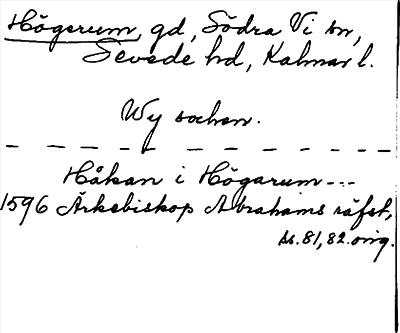 Högerum, gd, Södra Vi sn,
Sevede hd, Kalmar l.
Wy sochen.
Håkan i Högarum---
1596 Ärkebiskop Abrahams räfst,
ss. 81, 82. orig.